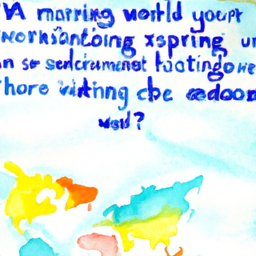 A marring world youpr
worksantoing xspring u
n se sedcirument tootingowe
hore vitning che cedoor
wsld?